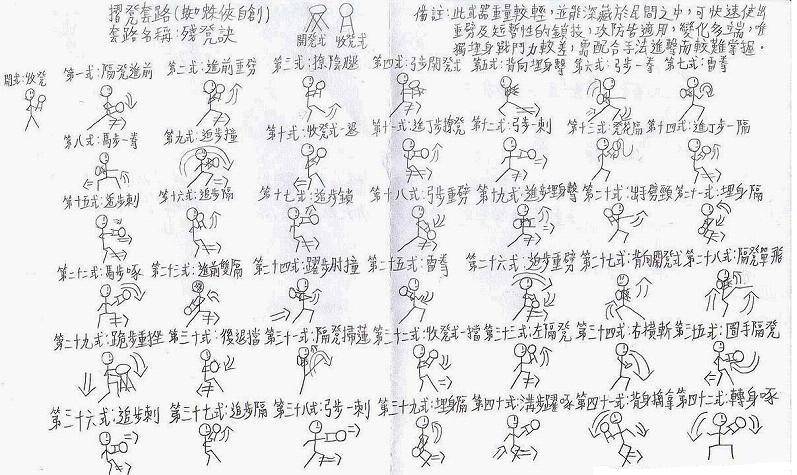 摺凳套路(蜘蛛俠自創)
套路名稱:殘凳訣
開凳式 收凳式
備註:此武器重量較輕,並能深藏於民間之中,可快速使出
重劈及短勢性的鎖技,攻防皆適用,變化多端,唯
獨埋身戰鬥力較差,需配合手法進擊而較難掌握。
開式:收凳
第一式:隔凳進前 第二式:進前重劈 第三式:撩陰腿 第四式:弓步開凳式 第五式:背向埋身擊 第六式:弓步一拳 第七式:雷拳
第八式:馬步一拳 第九式:進步撞 第十式:收凳式一退 第十一式:進丁步撩凳 第十二式:弓步一刺 第十三式:凳花隔 第十四式:進丁步一隔
第十五式:進步刺 第十六式:進步隔 第十七式:進步鎖 第十八式:弓步重劈 第十九式:進步埋身擊 第二十式:出手劈頸 第二十一式:埋身隔
第二十二式:馬步啄 第二十三式:進前雙隔 第二十四式:躍步肘撞 第二十五式:雷拳 第二十六式:進步重劈 第二十七式:背向開凳式 第二十八式:隔凳單飛
第二十九式:跪步重挫 第三十式:後退擋 第三十一式:隔凳掃蓮 第三十二式:收凳式一擋 第三十三式:左隔凳 第三十四式:右橫斬 第三十五式:圈手隔凳
第三十六式:進步刺 第三十七式:進步隔 第三十八式:弓步一刺 第三十九式:埋身隔 第四十式:溝步躍啄 第四十一式:背身擒拿 第四十二式:轉身啄